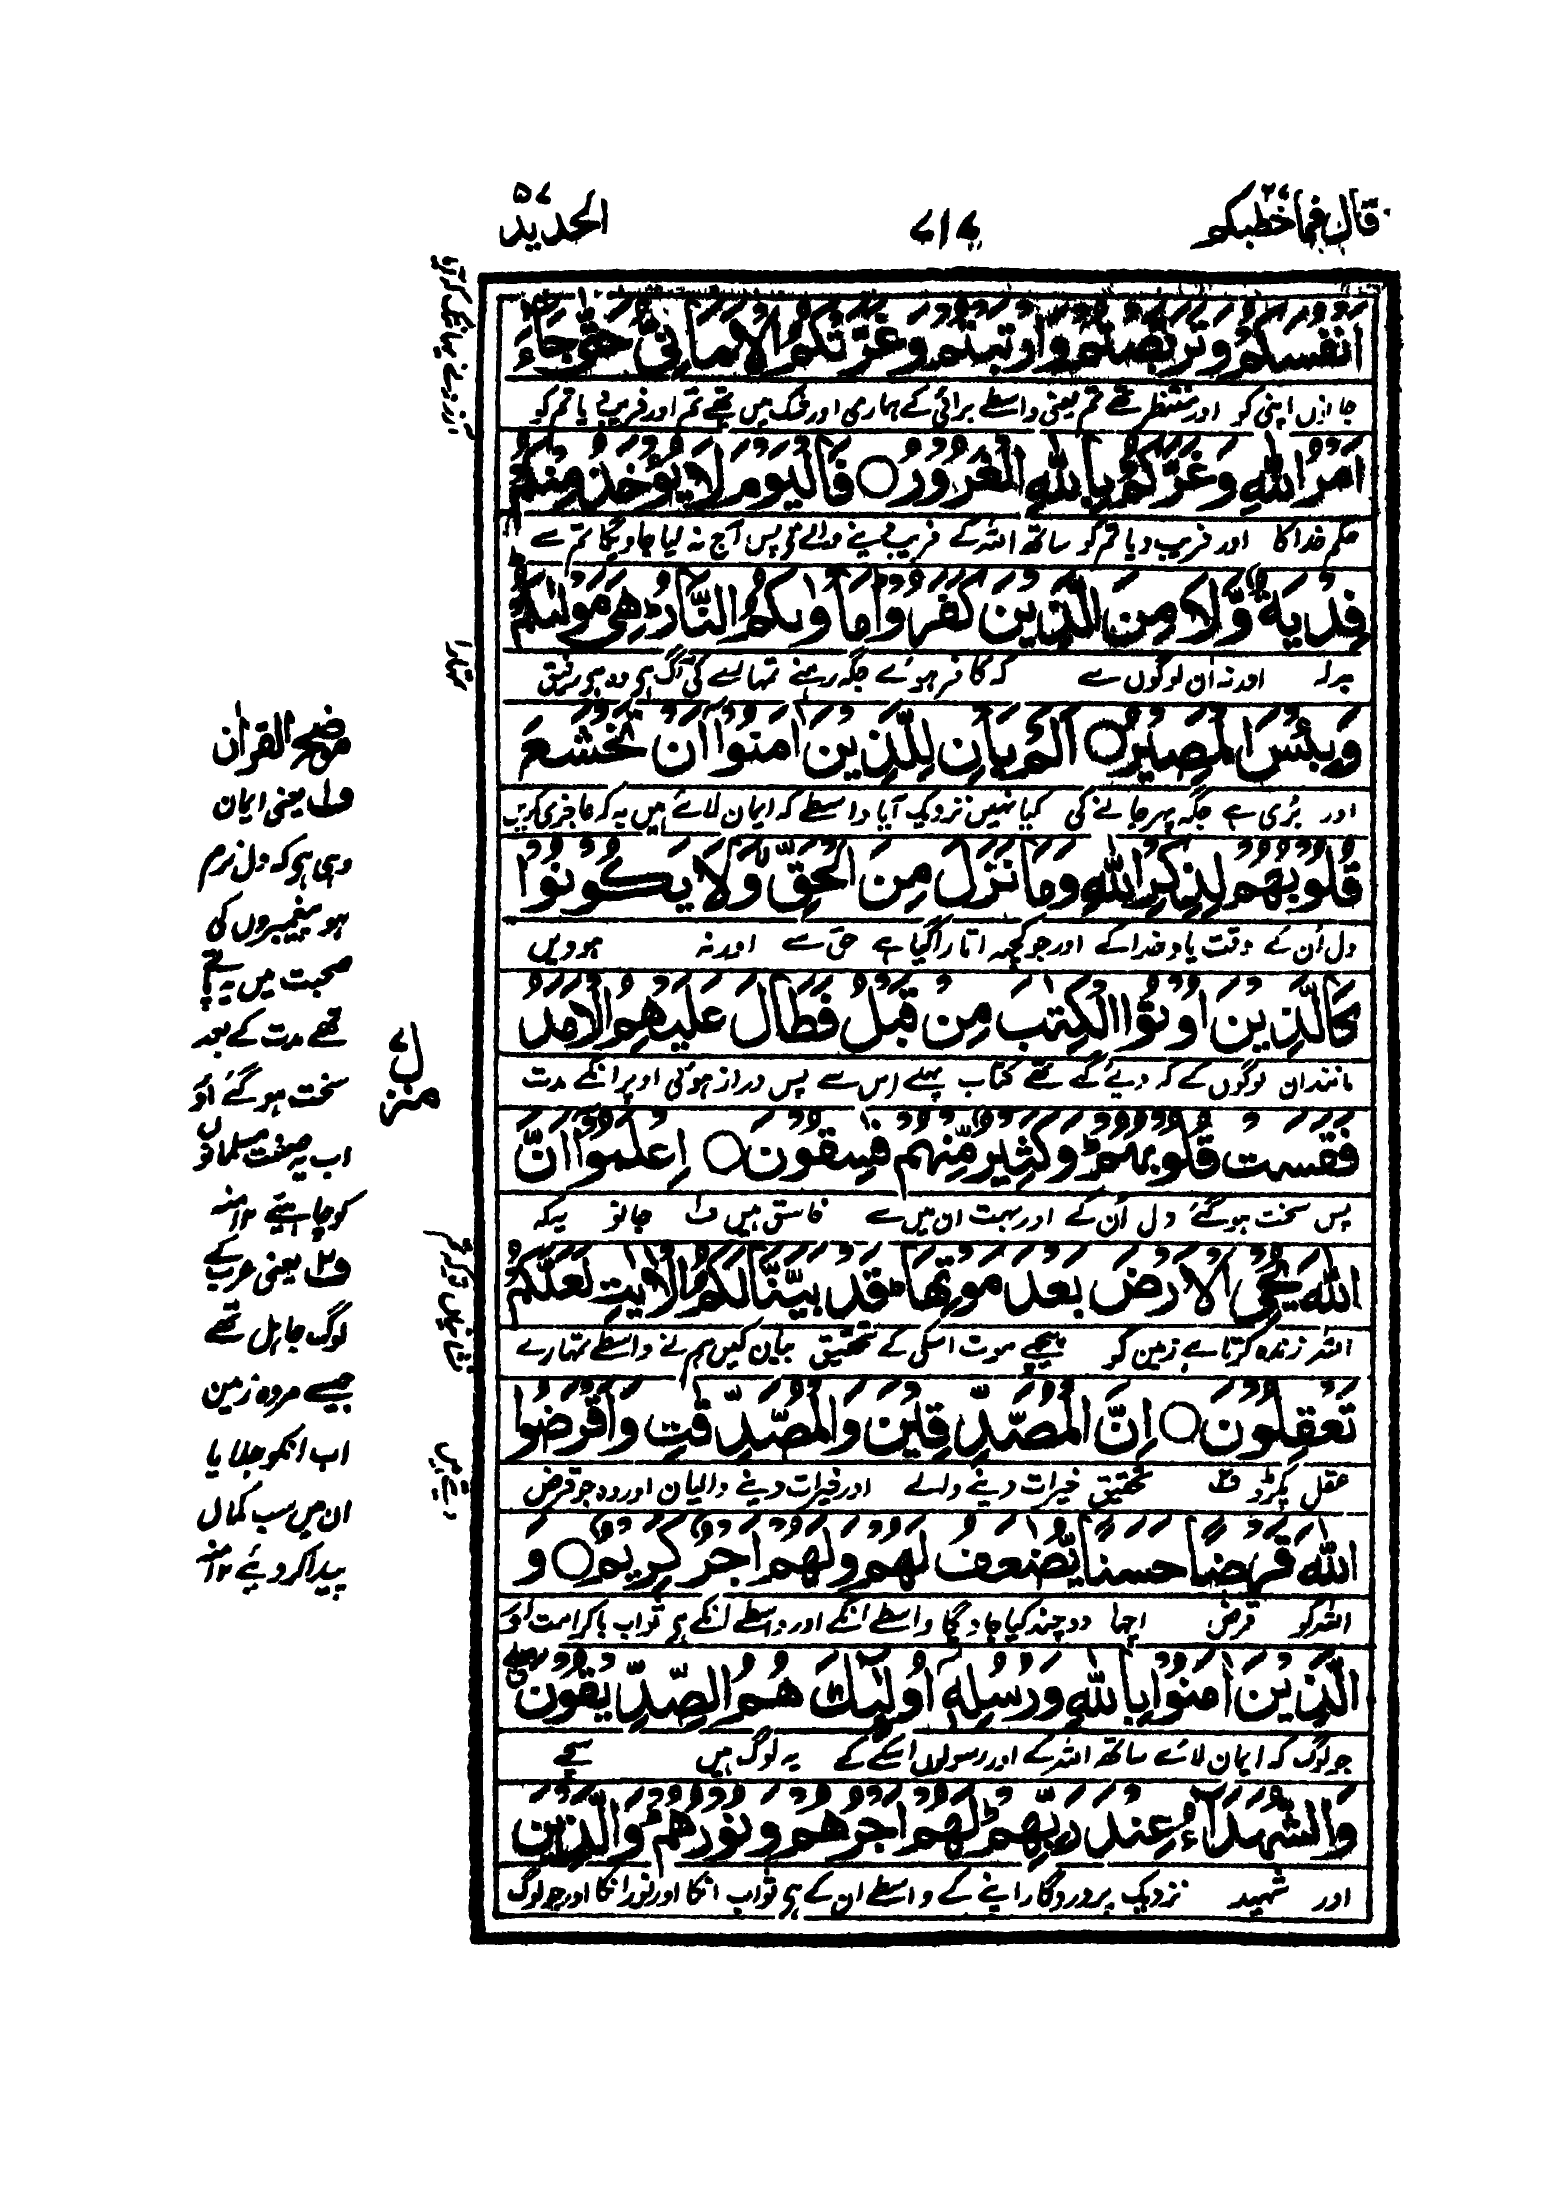 قال فما خطبكم ٢٧
٧١٧
الحديد ٥٧
اَنْفُسَكُمْ وَتَرَبَّصْتُمْ وَارْتَبْتُمْ وَغَرَّتْكُمُ الْاَمَانِيُّ حَتّٰى جَآءَ
جانوں اپنی کو اور منتظر تھے تم یعنی واسطے برائی کے ہماری اور شک میں تھے تم اور فریب دیا تم کو
آرزوؤں نے یہانتک کہ آیا
اَمْرُ اللّٰهِ وَغَرَّكُمْ بِاللّٰهِ الْغَرُوْرُ ○ فَالْيَوْمَ لَا يُؤْخَذُ مِنْكُمْ
حکم خدا کا اور فریب دیا تم کو ساتھ اللہ کے فریب دینے والے نے پس آج نہ لیا جاویگا تم سے
فِدْيَةٌ وَّلَا مِنَ الَّذِيْنَ كَفَرُوْا ؕ مَاْوٰىكُمُ النَّارُ ؕ هِيَ مَوْلٰىكُمْ ؕ
بدلہ اور نہ اُن لوگوں سے کہ کافر ہوئے جگہ رہنے تمہارے کی آگ ہی وہ ہی رفیق
تمہارا
وَبِئْسَ الْمَصِيْرُ ○ اَلَمْ يَاْنِ لِلَّذِيْنَ اٰمَنُوْۤا اَنْ تَخْشَعَ
اور بُری ہے جگہ پھر جانے کی کیا نہیں نزدیک آیا واسطے کہ ایمان لائے ہیں یہ کہ عاجزی کریں
قُلُوْبُهُمْ لِذِكْرِ اللّٰهِ وَمَا نَزَلَ مِنَ الْحَقِّ ۙ وَلَا يَكُوْنُوْا
دل اُن کے وقت یاد خدا کے اور جو کچھ اتارا گیا ہے حق سے اور نہ ہوویں
كَالَّذِيْنَ اُوْتُوا الْكِتٰبَ مِنْ قَبْلُ فَطَالَ عَلَيْهِمُ الْاَمَدُ
مانند ان لوگوں کے کہ دیئے گئے تھے کتاب پہلے اس سے پس دراز ہوئی اوپر انکے مدت
فَقَسَتْ قُلُوْبُهُمْ ؕ وَكَثِيْرٌ مِّنْهُمْ فٰسِقُوْنَ ○ اِعْلَمُوْۤا اَنَّ
پس سخت ہو گئے دل اُن کے اور بہت ان میں سے فاسق ہیں ف۱ جانو یہ کہ
اللّٰهَ يُحْيِ الْاَرْضَ بَعْدَ مَوْتِهَا ؕ قَدْ بَيَّنَّا لَكُمُ الْاٰيٰتِ لَعَلَّكُمْ
اللہ زندہ کرتا ہے زمین کو پیچھے موت اسکی کے تحقیق بیان کیں ہم نے واسطے تمہارے
نشانیاں تا کہ تم
تَعْقِلُوْنَ ○ اِنَّ الْمُصَّدِّقِيْنَ وَالْمُصَّدِّقٰتِ وَاَقْرَضُوا
عقل پکڑو ف۲ تحقیق خیرات دینے والے اور خیرات دینے والیاں اور وہ جو قرض
دیتے ہیں
اللّٰهَ قَرْضًا حَسَنًا يُّضٰعَفُ لَهُمْ وَلَهُمْ اَجْرٌ كَرِيْمٌ ○ وَ
اللہ کو قرض اچھا دوچند کیا جاویگا واسطے انکے اور واسطے انکے ہی ثواب باکرامت اور
الَّذِيْنَ اٰمَنُوْا بِاللّٰهِ وَرُسُلِهٖۤ اُولٰٓئِكَ هُمُ الصِّدِّيْقُوْنَ
جو لوگ کہ ایمان لائے ساتھ اللہ کے اور رسولوں اسکے کے یہ لوگ ہیں سچے
وَالشُّهَدَآءُ عِنْدَ رَبِّهِمْ ؕ لَهُمْ اَجْرُهُمْ وَنُوْرُهُمْ ؕ وَالَّذِيْنَ
اور شہید نزدیک پروردگار اپنے کے واسطے ان کے ہی ثواب انکا اور نور انکا اور جو لوگ
موضح القرآن
ف۱ یعنی ایمان
وہی ہی کہ دل نرم
ہو پیغمبروں کی
صحبت میں یہ پاتے
تھے مدت کے بعد
سخت ہو گئے اور
اب یہ صفت مسلمانوں
کو چاہیئے ۱۲ منہ
ف۲ یعنی عرب کے
لوگ جاہل تھے
جیسے مردہ زمین
اب انکو جلایا
ان میں سب کمال
پیدا کر دیئے ۱۲ منہ
منزل ٧